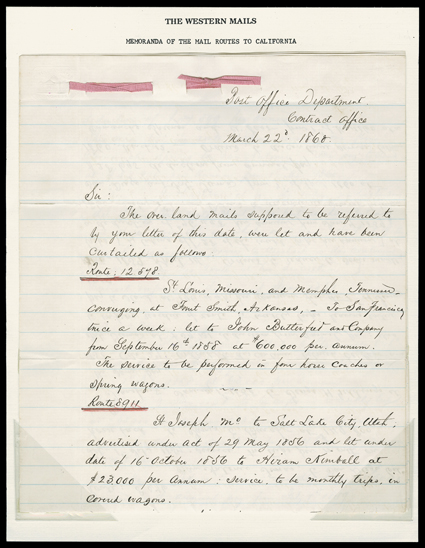 THE WESTERN MAILS
MEMORANDA OF THE MAIL ROUTES TO CALIFORNIA
Post Office Department.
Contract Office
March 22d 1860.
Sir:
The over land mails supposed to be referred to
by your letter of this date, were let and have been
curtailed as follows.
Route: 12,578.
St Louis, Missouri, and Memphis, Tennessee-
converging at Fort Smith, Arkansas, - To San Francisco
twice a week: let to John Butterfield and Company
from September 16th 1858 at $600,000 per annum.
The service to be performed in four horse coaches or
Spring wagons.
Route 8911.
St Joseph Mo to Salt Lake City, Utah,
advertised under act of 29 May 1856 and let under
date of 16 October 1856 to Hiram Kimball at
$23,000 per Annum: service, to be monthly trips, in
covered wagons.